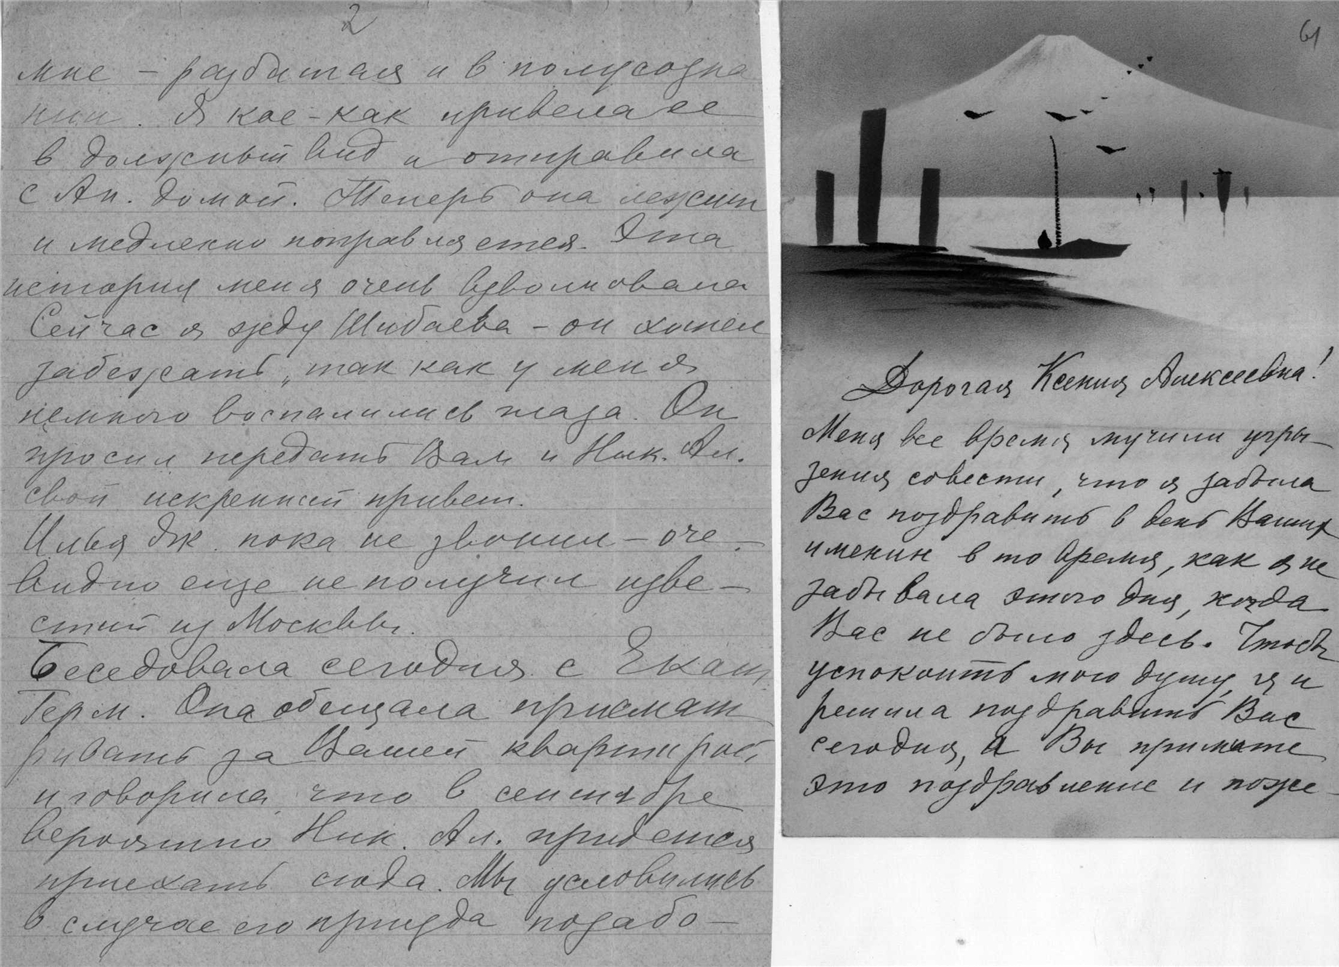 2
мне – разбитая и в полусозна
нии. Я кое-как привела ее
в должный вид и отправила
с Ан. домой. Теперь она лежит
и медленно поправляется. Эта
история меня очень взволновала
Сейчас я жду Шибаева – он хотел
забежать, так как у меня
немного воспалились глаза. Он
просил передать Вам и Ник. Ал.
свой искренний привет.
Илья Дж. пока не звонил – оче-
видно еще не получил изве-
стий из Москвы.
Беседовала сегодня с Екат.
Герм. Она обещала присмат
ривать за Вашей квартирой,
и говорила, что в сентябре
вероятно Ник. Ал. придется
приехать сюда. Мы условились
в случае его приезда позабо-
61
Дорогая Ксения Алексеевна!
Меня все время мучили угры-
зения совести, что я забыла
Вас поздравить в день Ваших
именин в то время, как я не
забывала этого дня, когда
Вас не было здесь. Чтобы
успокоить мою душу, я и
решила поздравить Вас
сегодня, а Вы примите
это поздравление и поже-